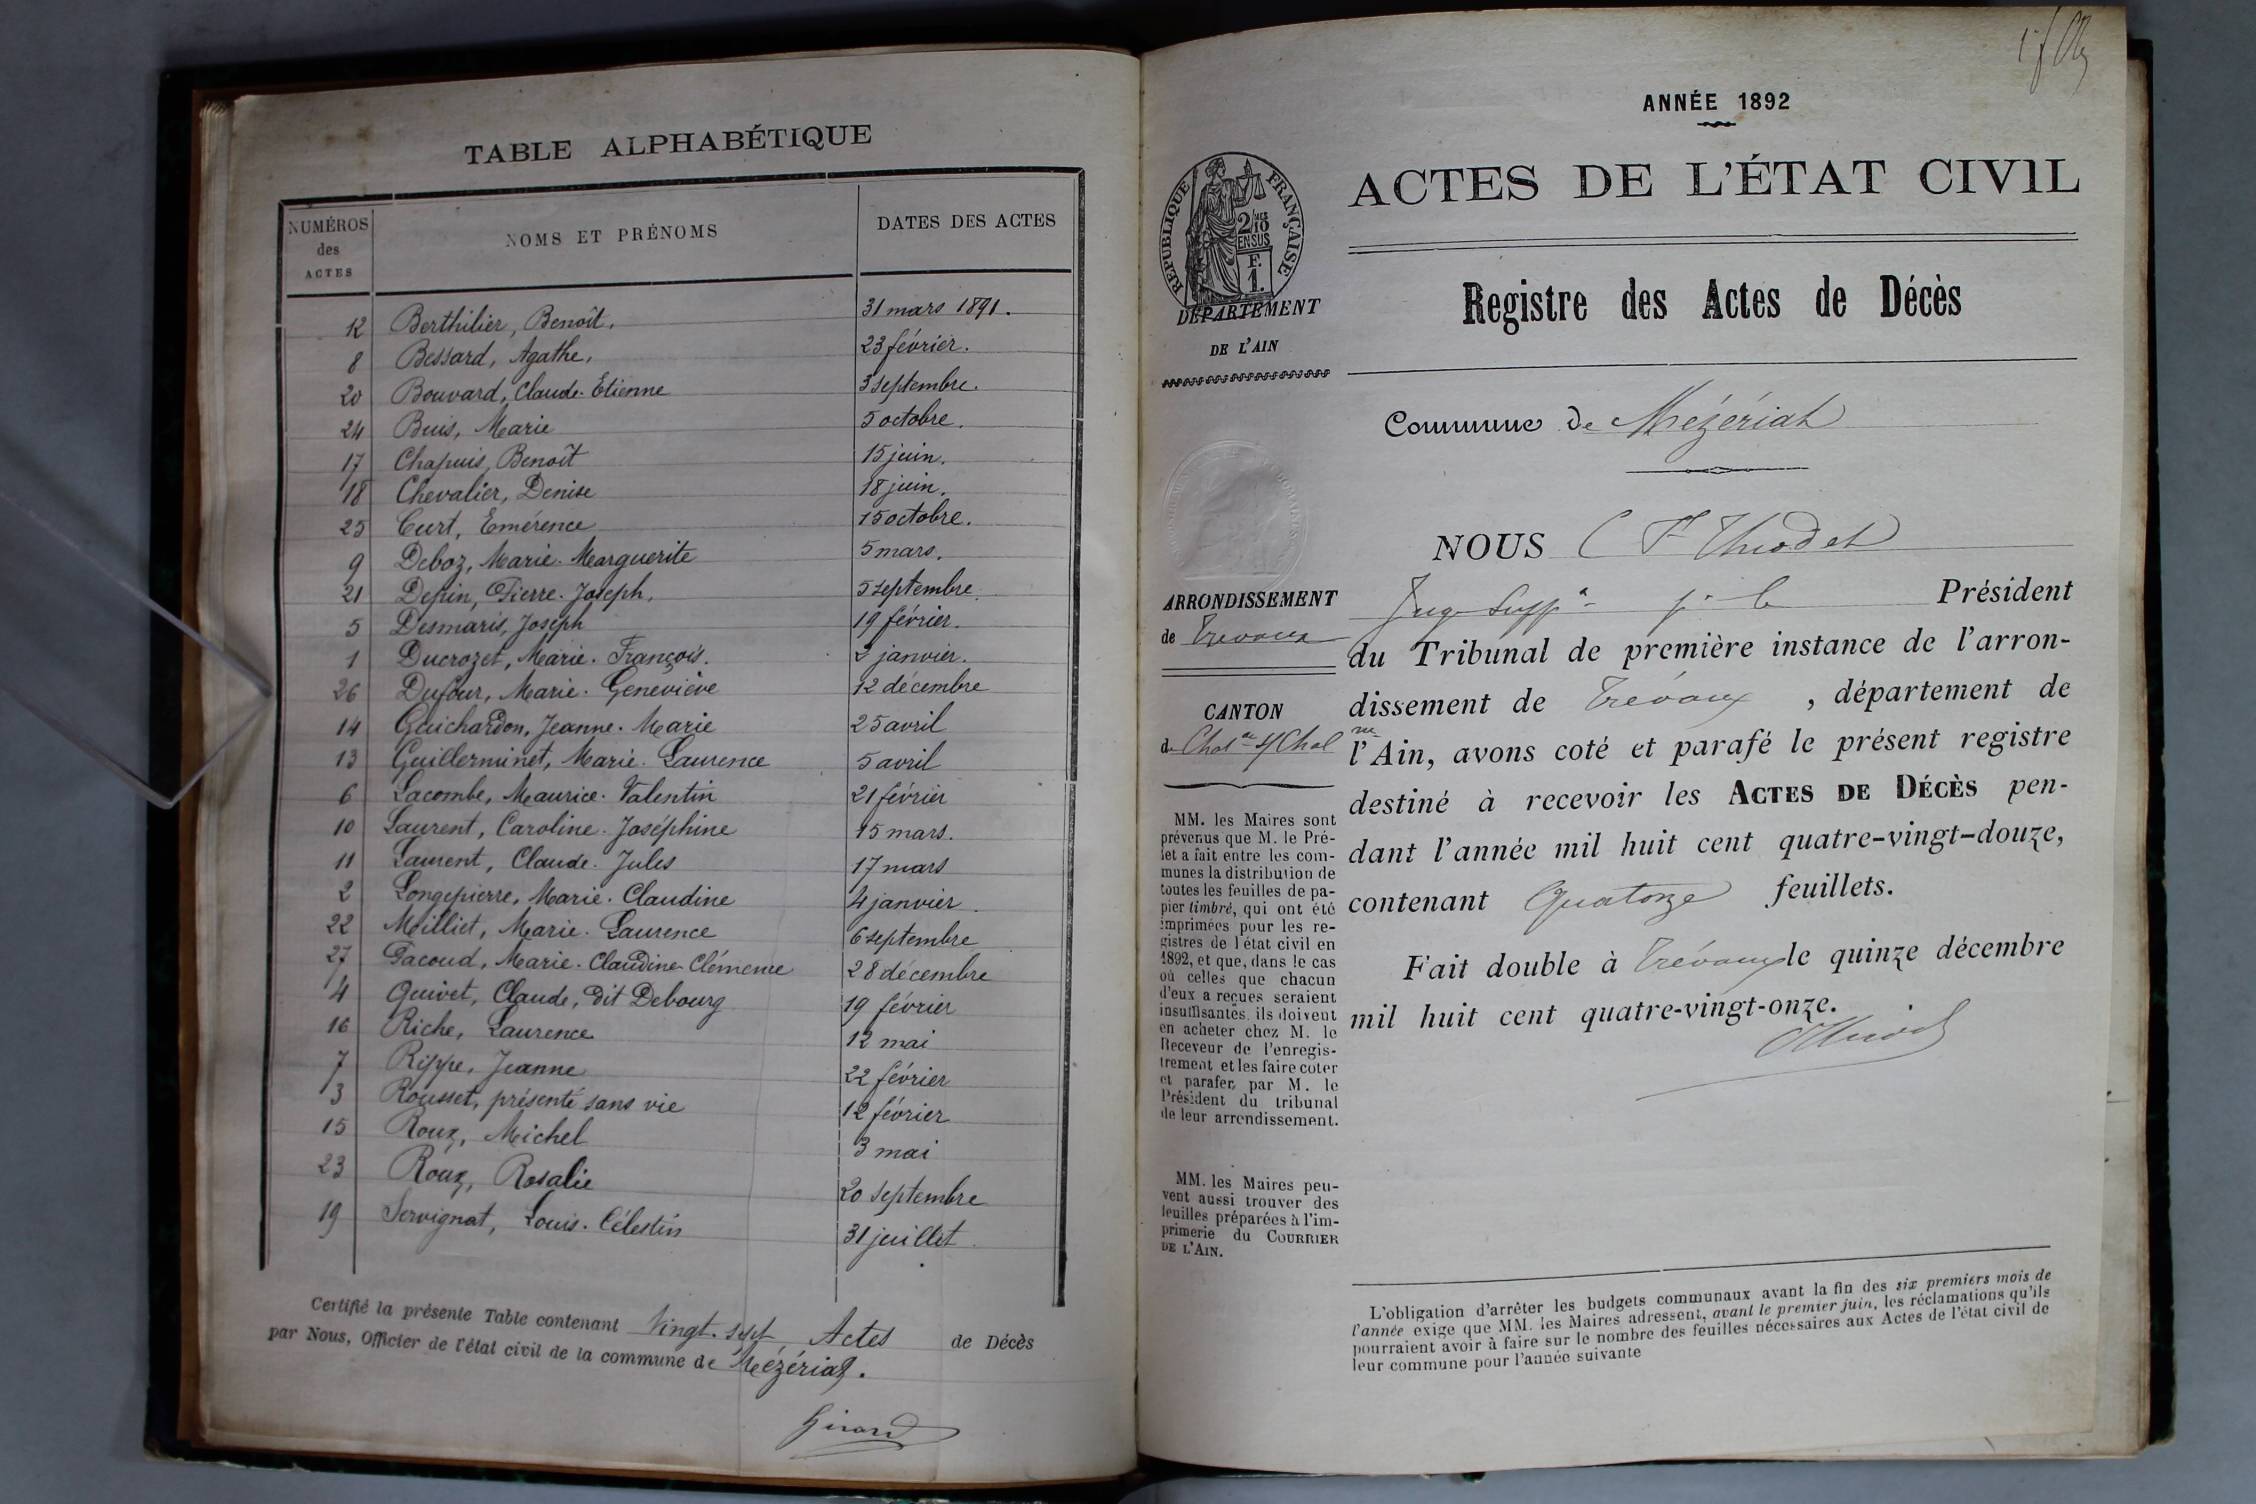 TABLE ALPHABÉTIQUE
NUMÉROS des ACTES NOMS ET PRÉNOMS DATES DES ACTES
12 Berthilier, Benoît. 31 mars 1891.
8 Bessard, Agathe. 23 février.
20 Bouvard, Claude-Etienne 3 septembre.
24 Buis, Marie 5 octobre.
17 Chapuis, Benoît 15 juin.
18 Chevalier, Denise 18 juin.
25 Curt, Emérence 15 octobre.
9 Deboz, Marie-Marguerite 5 mars.
21 Depin, Pierre-Joseph. 5 septembre.
5 Desmaris, Joseph 19 février.
1 Ducrozet, Marie-François. 2 janvier.
26 Dufour, Marie-Geneviève 12 décembre
14 Guichardon, Jeanne-Marie 25 avril
13 Guilleminet, Marie-Laurence 5 avril
6 Lacombe, Maurice-Valentin 21 février
10 Laurent, Caroline-Joséphine 15 mars.
11 Laurent, Claude-Jules 17 mars
2 Longepierre, Marie-Claudine 4 janvier.
22 Milliet, Marie-Laurence 6 septembre
27 Pacoud, Marie-Claudine-Clémence 28 décembre
4 Quivet, Claude, dit Debourg 19 février
16 Riche, Laurence 12 mai
7 Rippe, Jeanne 22 février
3 Rousset, présenté sans vie 12 février
15 Roux, Michel 3 mai
23 Roux, Rosalie 20 septembre
19 Servignat, Louis-Célestin 31 juillet.
Certifié la présente Table contenant Vingt-sept Actes de Décès
par Nous, Officier de l'état civil de la commune de Mézériat.
Girard
ANNÉE 1892
ACTES DE L'ÉTAT CIVIL
RÉPUBLIQUE FRANÇAISE
2/10 MES
EN SUS
F.
1.
DÉPARTEMENT
DE L'AIN
Registre des Actes de Décès
Commune de Mézériat
ARRONDISSEMENT
de Trévoux
CANTON
de Chat on s/ Chal ne
MM. les Maires sont
prévenus que M. le Pré-
fet a fait entre les com-
munes la distribution de
toutes les feuilles de pa-
pier timbré, qui ont été
imprimées pour les re-
gistres de l'état civil en
1892, et que, dans le cas
où celles que chacun
d'eux a reçues seraient
insuffisantes, ils doivent
en acheter chez M. le
Receveur de l'enregis-
trement et les faire coter
et parafer, par M. le
Président du tribunal
de leur arrondissement.
MM. les Maires peu-
vent aussi trouver des
feuilles préparées à l'im-
primerie du COURRIER
DE L'AIN.
NOUS C F Thiodet
Juge supp t p r le Président
du Tribunal de première instance de l'arron-
dissement de Trévoux, département de
l'Ain, avons coté et parafé le présent registre
destiné à recevoir les ACTES DE DÉCÈS pen-
dant l'année mil huit cent quatre-vingt-douze,
contenant Quatorze feuillets.
Fait double à Trévoux le quinze décembre
mil huit cent quatre-vingt-onze.
L'obligation d'arrêter les budgets communaux avant la fin des six premiers mois de
l'année exige que MM. les Maires adressent, avant le premier juin, les réclamations qu'ils
pourraient avoir à faire sur le nombre des feuilles nécessaires aux Actes de l'état civil de
leur commune pour l'année suivante